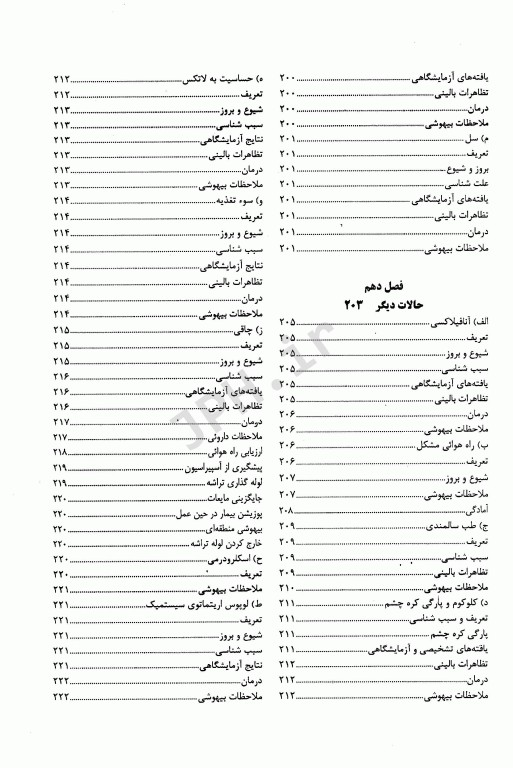 یافته‌های آزمایشگاهی ۲۰۰
تظاهرات بالینی ۲۰۰
درمان ۲۰۰
ملاحظات بیهوشی ۲۰۰
م) سل ۲۰۱
تعریف ۲۰۱
بروز و شیوع ۲۰۱
علت شناسی ۲۰۱
یافته‌های آزمایشگاهی ۲۰۱
تظاهرات بالینی ۲۰۱
درمان ۲۰۱
ملاحظات بیهوشی ۲۰۱
فصل دهم
حالات دیگر ۲۰۳
الف) آنافیلاکسی ۲۰۵
تعریف ۲۰۵
شیوع و بروز ۲۰۵
سبب شناسی ۲۰۵
یافته‌های آزمایشگاهی ۲۰۵
تظاهرات بالینی ۲۰۵
درمان ۲۰۶
ملاحظات بیهوشی ۲۰۶
ب) راه هوائی مشکل ۲۰۶
تعریف ۲۰۶
شیوع و بروز ۲۰۷
ملاحظات بیهوشی ۲۰۷
آمادگی ۲۰۸
ج) طب سالمندی ۲۰۹
تعریف ۲۰۹
سبب شناسی ۲۰۹
تظاهرات بالینی ۲۰۹
ملاحظات بیهوشی ۲۱۰
د) گلوکوم و پارگی کره چشم ۲۱۱
تعریف و سبب شناسی ۲۱۱
پارگی کره چشم ۲۱۱
یافته‌های تشخیصی و آزمایشگاهی ۲۱۱
تظاهرات بالینی ۲۱۲
درمان ۲۱۲
ملاحظات بیهوشی ۲۱۲
ه) حساسیت به لاتکس ۲۱۲
تعریف ۲۱۲
شیوع و بروز ۲۱۳
سبب شناسی ۲۱۳
نتایج آزمایشگاهی ۲۱۳
تظاهرات بالینی ۲۱۳
درمان ۲۱۳
ملاحظات بیهوشی ۲۱۳
و) سوء تغذیه ۲۱۴
تعریف ۲۱۴
شیوع و بروز ۲۱۴
سبب شناسی ۲۱۴
نتایج آزمایشگاهی ۲۱۴
تظاهرات بالینی ۲۱۴
درمان ۲۱۴
ملاحظات بیهوشی ۲۱۴
ز) چاقی ۲۱۵
تعریف ۲۱۵
شیوع و بروز ۲۱۵
سبب شناسی ۲۱۶
یافته‌های آزمایشگاهی ۲۱۶
تظاهرات بالینی ۲۱۶
درمان ۲۱۷
ملاحظات داروئی ۲۱۷
ارزیابی راه هوائی ۲۱۸
پیشگیری از آسپیراسیون ۲۱۹
لوله گذاری تراشه ۲۱۹
جایگزینی مایعات ۲۲۰
پوزیشن بیمار در حین عمل ۲۲۰
بیهوشی منطقه‌ای ۲۲۰
خارج کردن لوله تراشه ۲۲۰
ح) اسکلرودرمی ۲۲۰
تعریف ۲۲۰
ملاحظات بیهوشی ۲۲۱
ط) لوپوس اریتماتوی سیستمیک ۲۲۱
تعریف ۲۲۱
شیوع و بروز ۲۲۱
سبب شناسی ۲۲۱
نتایج آزمایشگاهی ۲۲۱
درمان ۲۲۲
ملاحظات بیهوشی ۲۲۲